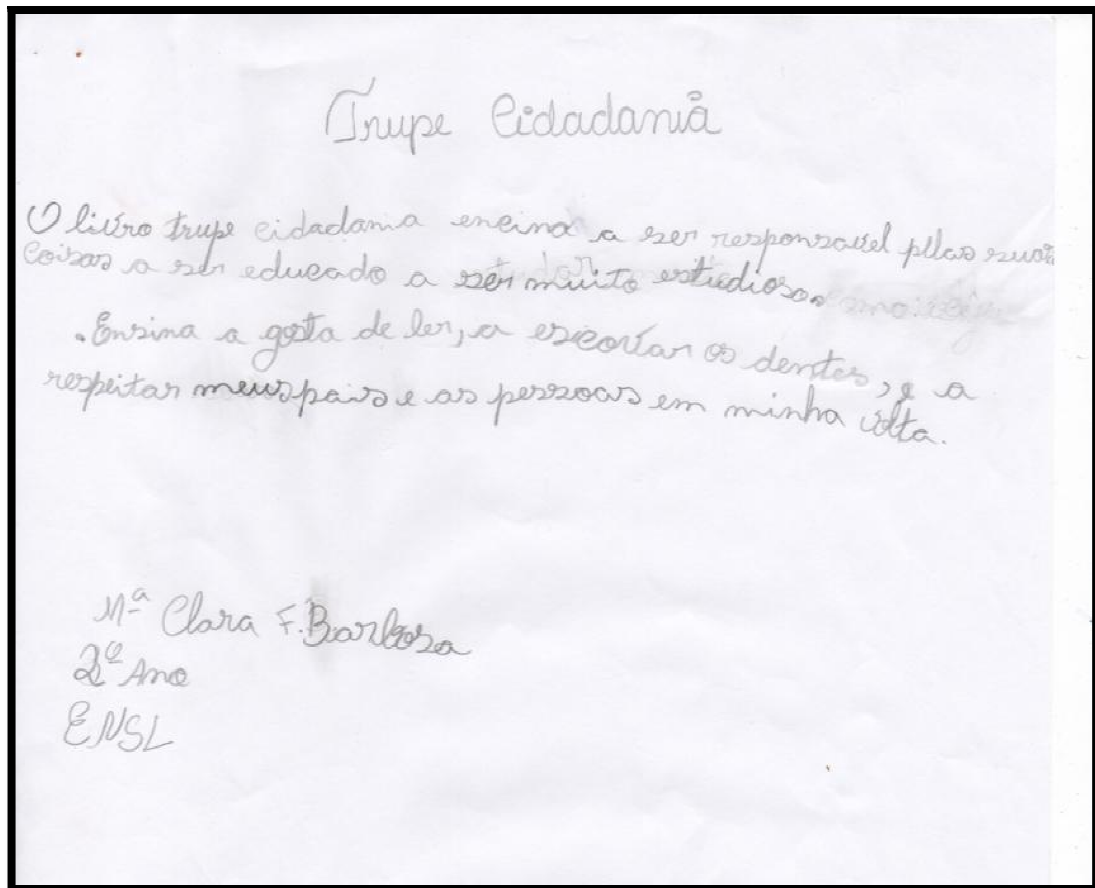 Trupe Cidadania
O livro trupe cidadania encina a ser responsavel pelas suas
Coisas a ser educado a ser muito estudioso.
. Ensina a gosta de ler, a escovar os dentes, e a
respeitar meus pais e as pessoas em minha volta.
Mª Clara F. Barbosa
2º Ano
ENSL